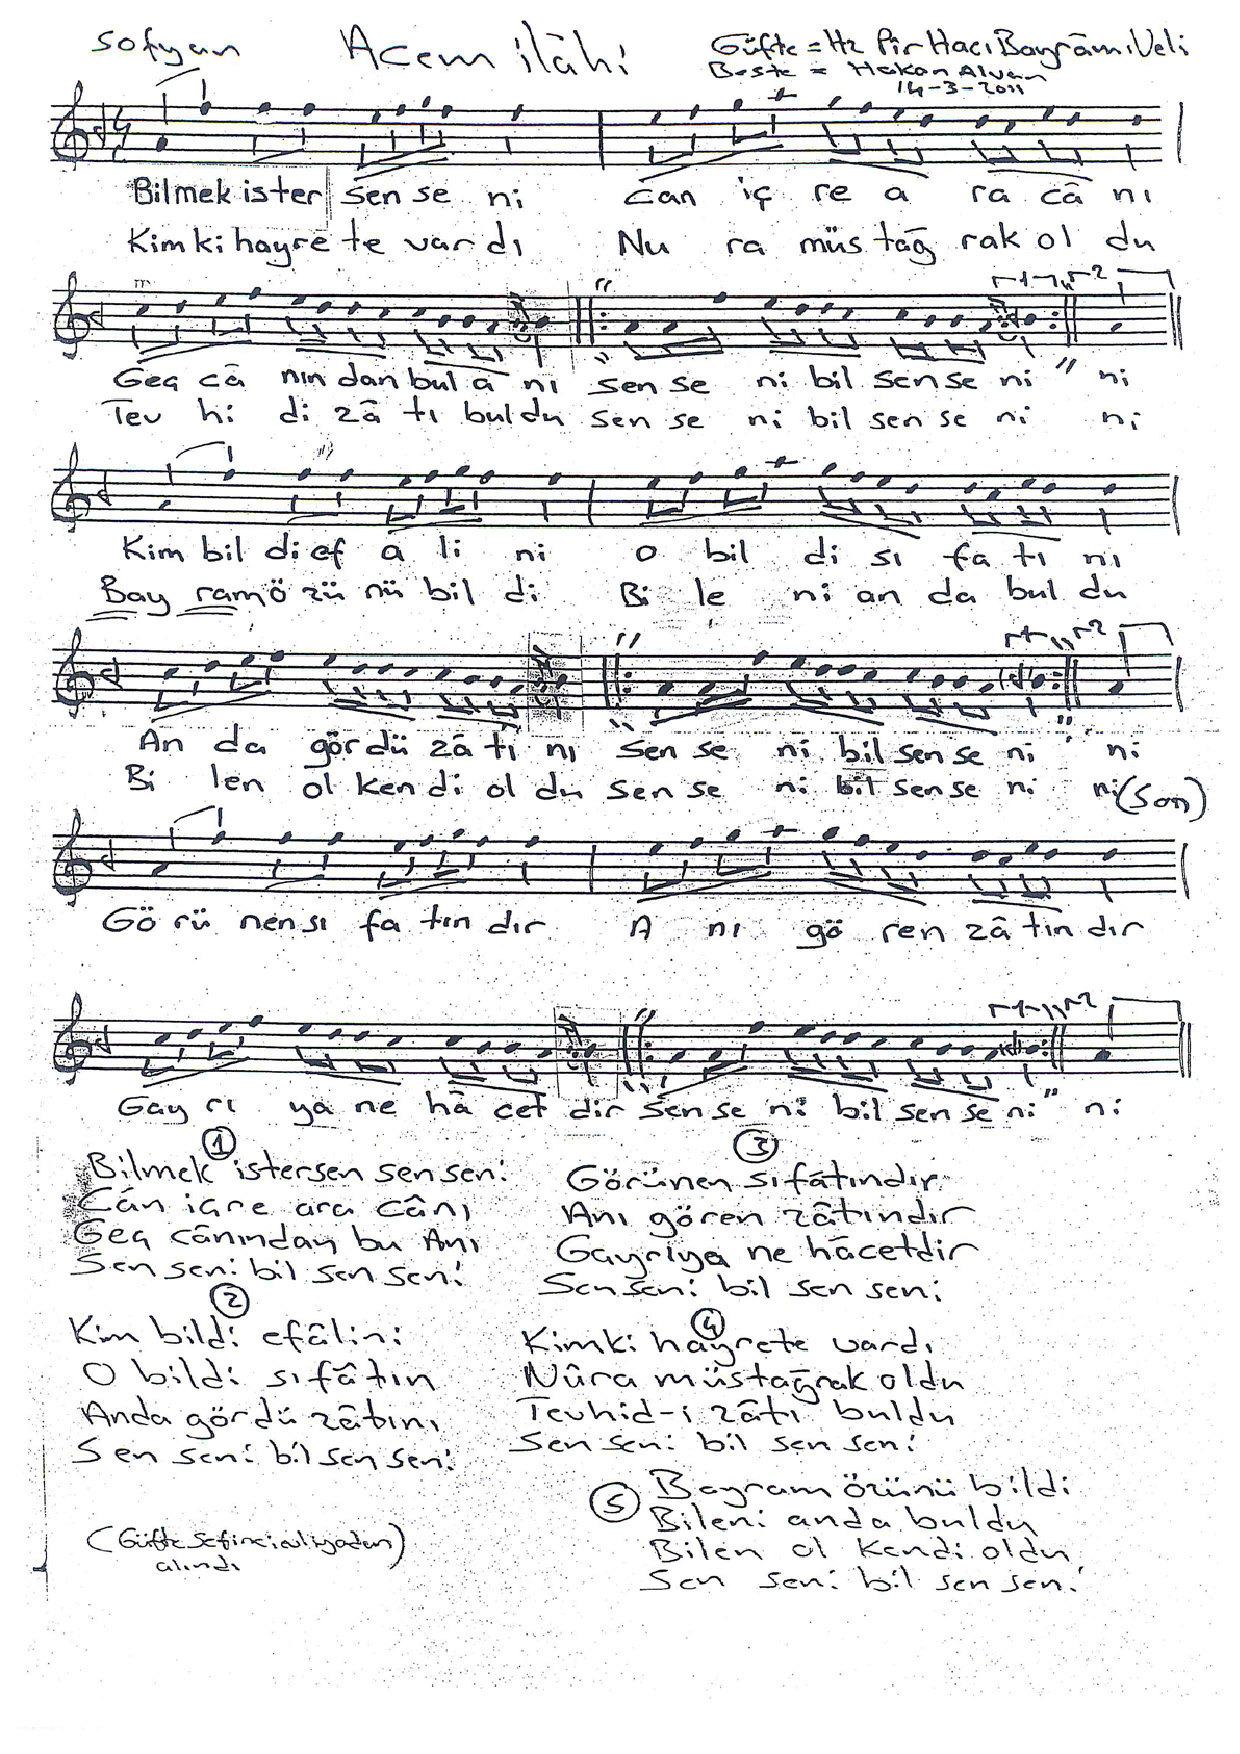 Sofyan
Acem ilâhi
Güfte = Hz Pir Hacı Bayrâm-ı Veli
Beste = Hakan Alvan
14-3-2011
Bilmek ister sen se ni can iç re a ra câ nı
Kim ki hayre te var dı Nu ra müs tağ rak ol du
Geç câ nın dan bul a nı sen se ni bil sen se ni " ni
Tev hi di zâ tı bul du sen se ni bil sen se ni ni
Kim bil di ef a li ni o bil di sı fa tı nı
Bay ram ö zü nü bil di Bi le ni an da bul du
An da gör dü zâ tı nı sen se ni bil sen se ni " ni
Bi len ol ken di ol du sen se ni bil sen se ni ni (son)
Gö rü nen sı fa tın dır A nı gö ren zâ tın dır
Gay rı ya ne hâ cet dir sen se ni bil sen se ni " ni
1
Bilmek istersen sen seni
Cân içre ara cânı
Geç cânından bu Anı
Sen seni bil sen seni
2
Kim bildi efâlini
O bildi sıfâtın
Anda gördü zâtını
Sen seni bil sen seni
3
Görünen sıfâtındır
Anı gören zâtındır
Gayrıya ne hâcetdir
Sen seni bil sen seni
4
Kimki hayrete vardı
Nûra müstağrak oldu
Tevhid-i zâtı buldu
Sen seni bil sen seni
5
Bayram özünü bildi
Bileni anda buldu
Bilen ol kendi oldu
Sen seni bil sen seni
(Güfte Sefinei evliyadan)
alındı